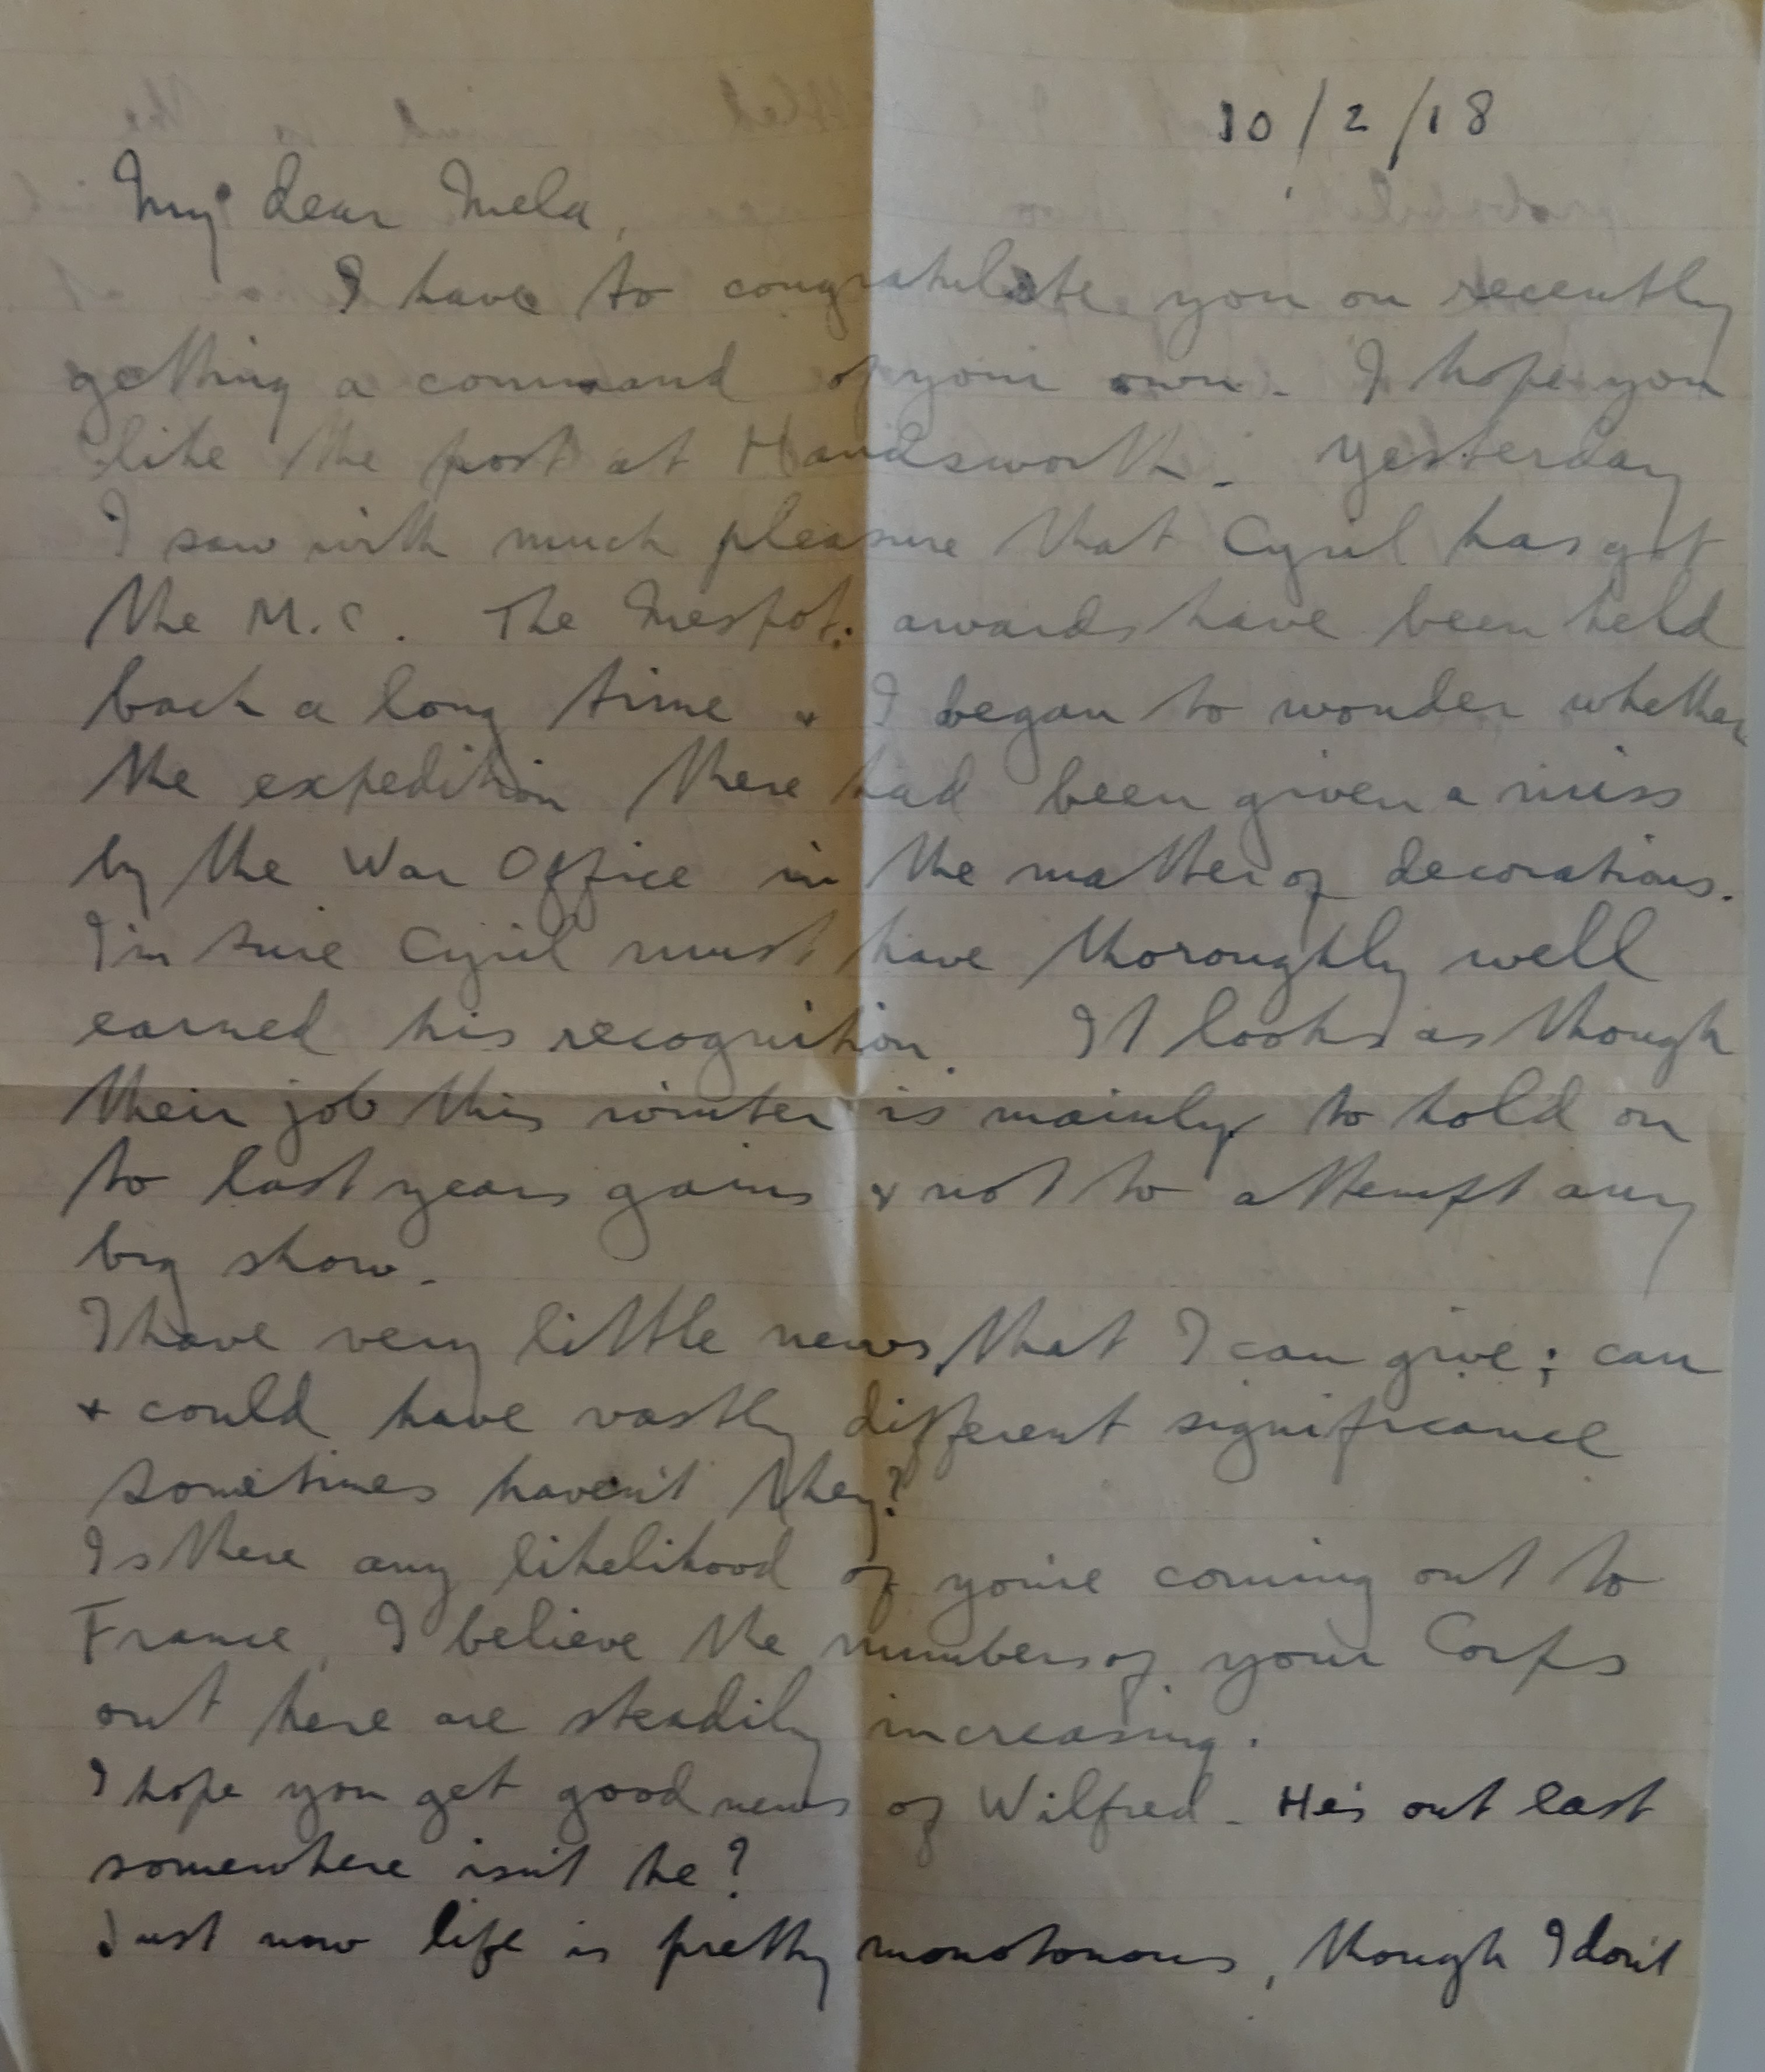 10/2/18
My dear Mela,
I have to congratulate you on recently
getting a command of your own. I hope you
like the post at Handsworth. Yesterday
I saw with much pleasure that Cyril has got
the M.C. The Mespot. awards have been held
back a long time & I began to wonder whether
the expedition there had been given a miss
by the War Office in the matter of decorations.
I'm sure Cyril must have thoroughly well
earned his recognition. It looks as though
their job this winter is mainly to hold on
to last years gains & not to attempt any
big show.
I have very little news that I can give; can
& could have vastly different significance
sometimes haven't they?
Is there any likelihood of you're coming out to
France, I believe the numbers of your Corps
out here are steadily increasing.
I hope you get good news of Wilfred. He's out East
somewhere isn't he?
Just now life is pretty monotonous, though I don't